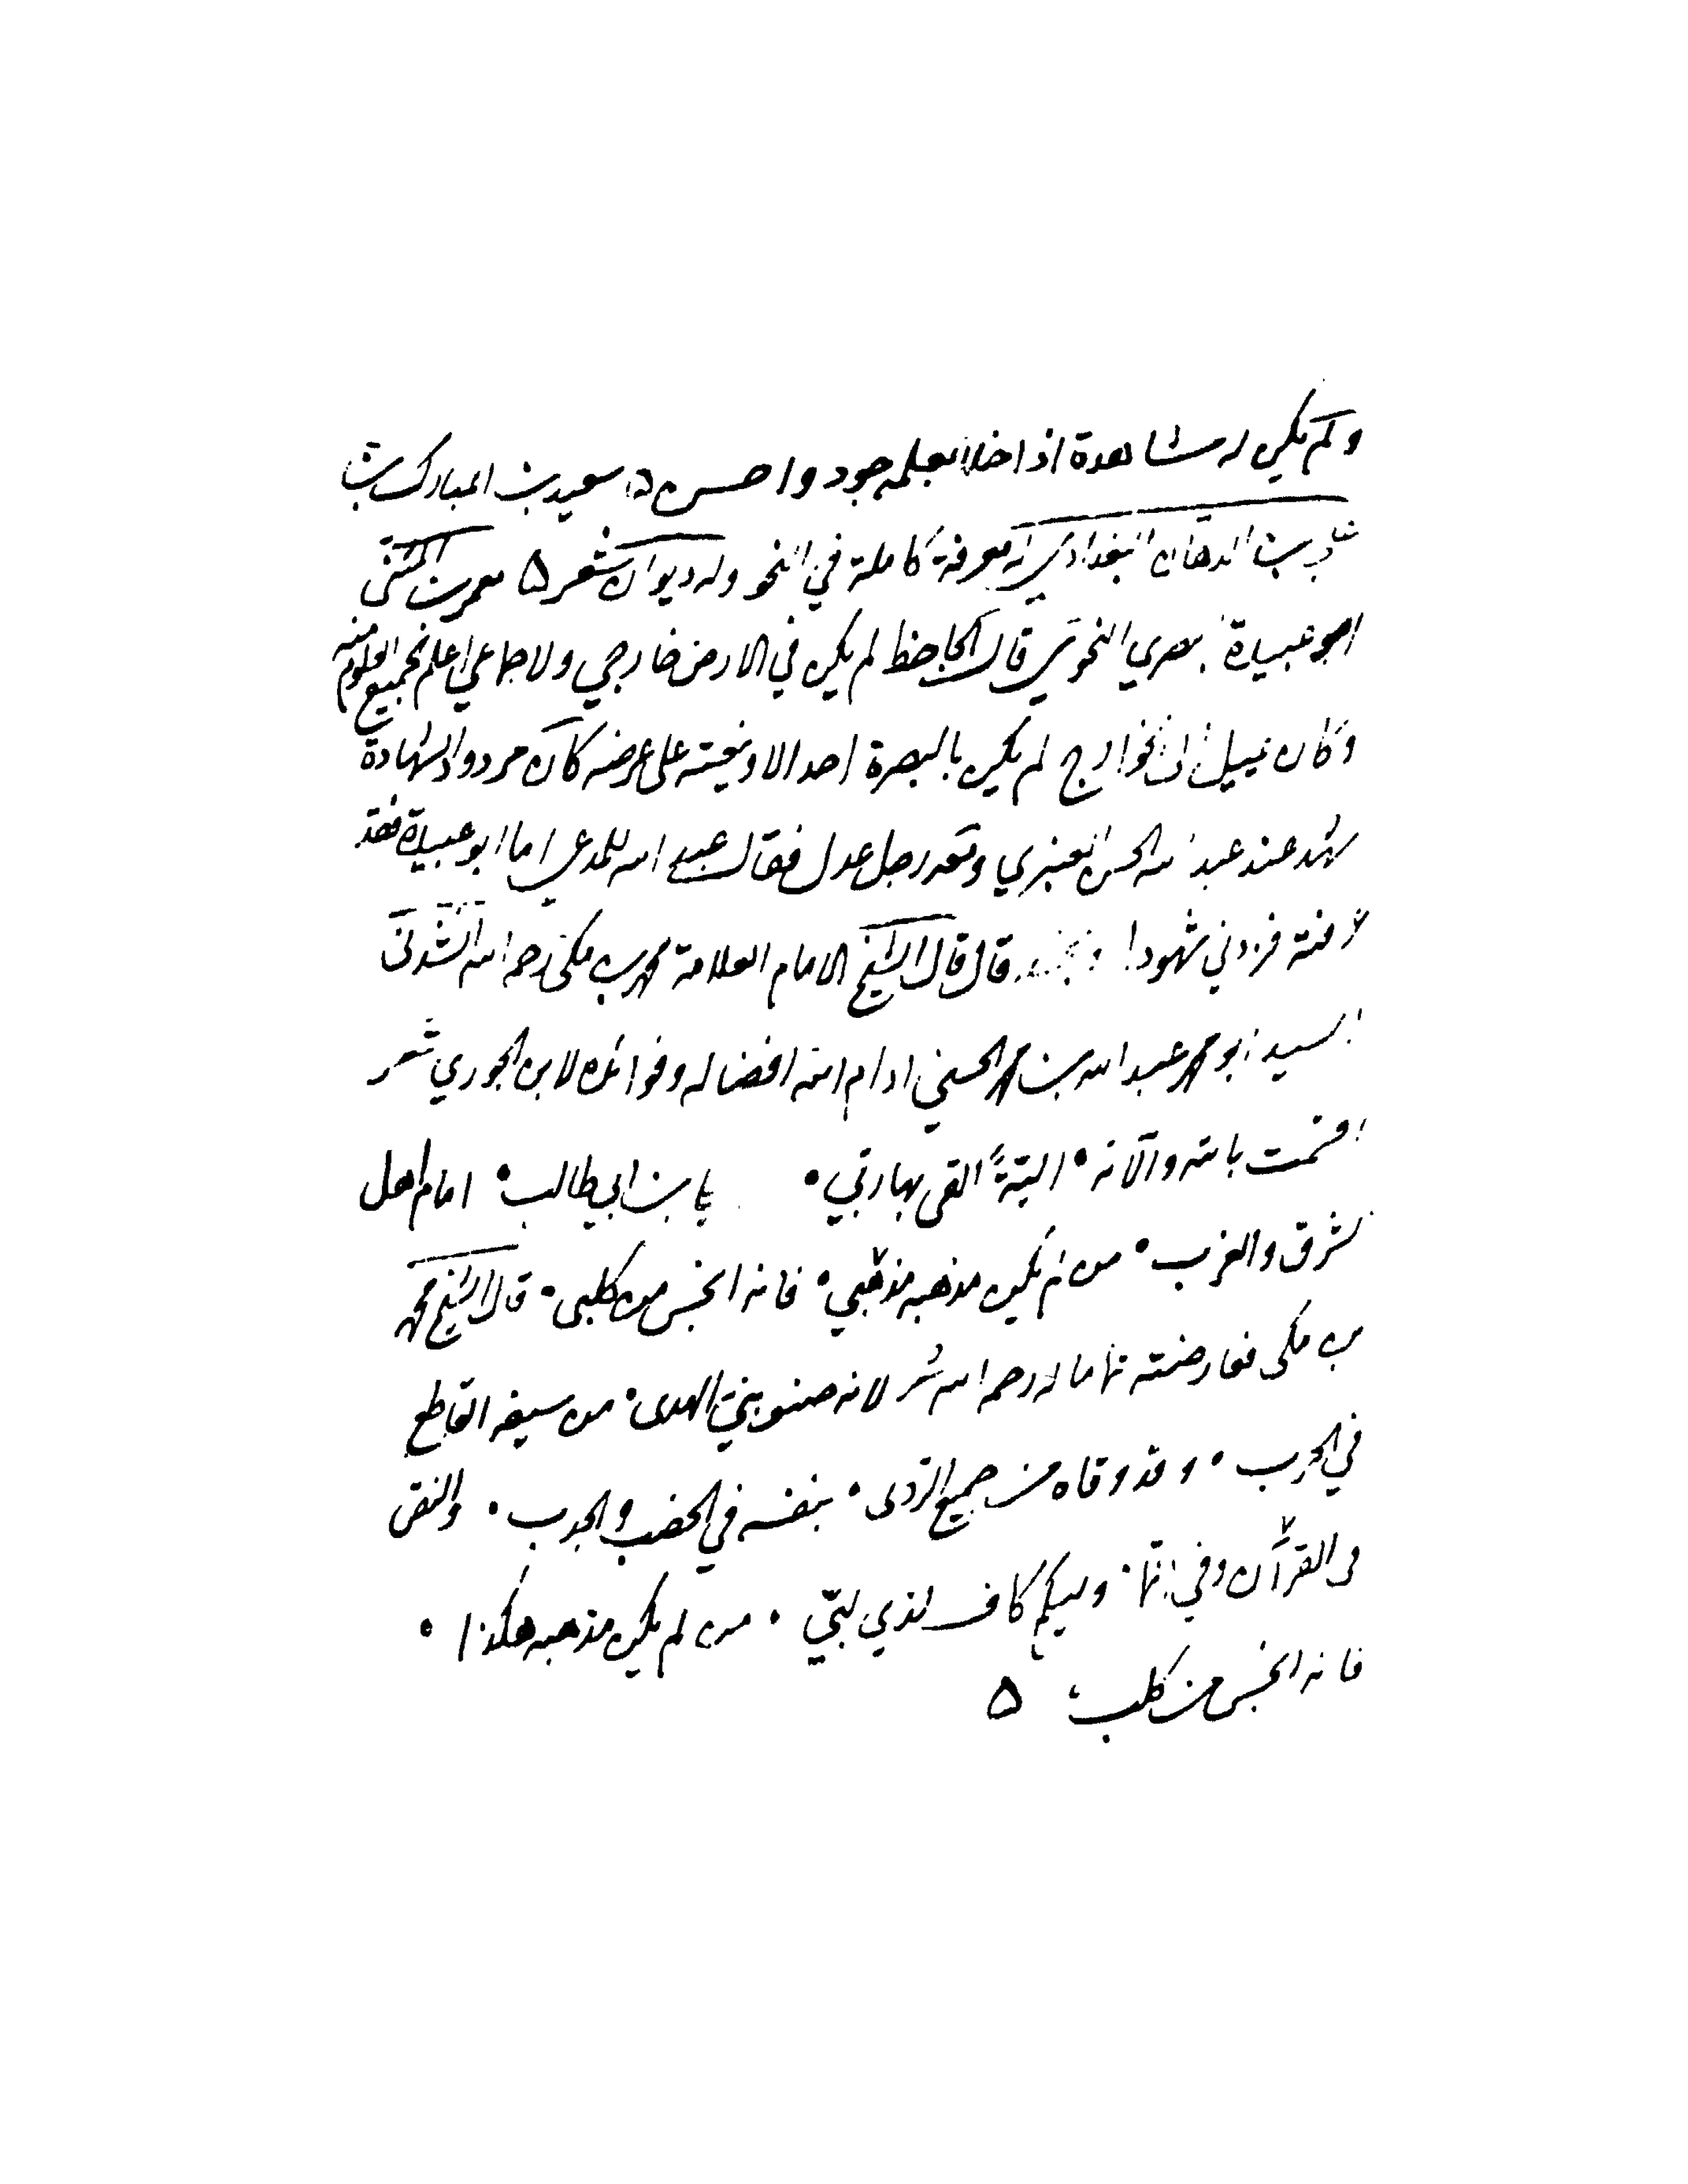 ولم يكن له مشاهدة اذا خلا بعلمه جود واحسن ه سعيد بن المبارك بن
بن الدهان البغدادي له معرفة كاملة في النحو وله ديوان شعر ه معمر بن المثنى
ابو عبيدة البصري النحوي قال الجاحظ لم يكن في الارض خارجي ولا جماعي اعلم بجميع العلوم منه
وكان يميل الى الخوارج لم يكن بالبصرة احد الا ويغيته على عرضه كان مردود الشهادة
شهد عند عبد الله الحسن العنبري ومعه رجل عدل فقال عبيد الله للمدعي اما ابو عبيدة فقد
فزدني شهودا قال قال الشيخ الامام العلامة محمد بن مكي رحمه الله انشدني
السيد ابو محمد عبد الله بن محمد الحسيني ادام الله افضاله وفوائده لابن الجوزي شعر
اقسمت بالله وآلائه • البتة القى بها ربي • بن ابي طالب • امام اهل
الشرق والغرب • من لم يكن مذهبه مذهبي • فانه انجس من كلبي • قال الشيخ محمد
بن مكي فعارضته تماما له رحمه الله شعر لانه صنو نبي الهدى • من سيفه القاطع
في الحرب • وقد وقاه من جميع الردى • بنفسه في الخصب والجدب • والنص
في القرآن وفي انما • وليكم كاف لذي لب • من لم يكن مذهبه هكذا •
فانه انجس من كلب ه